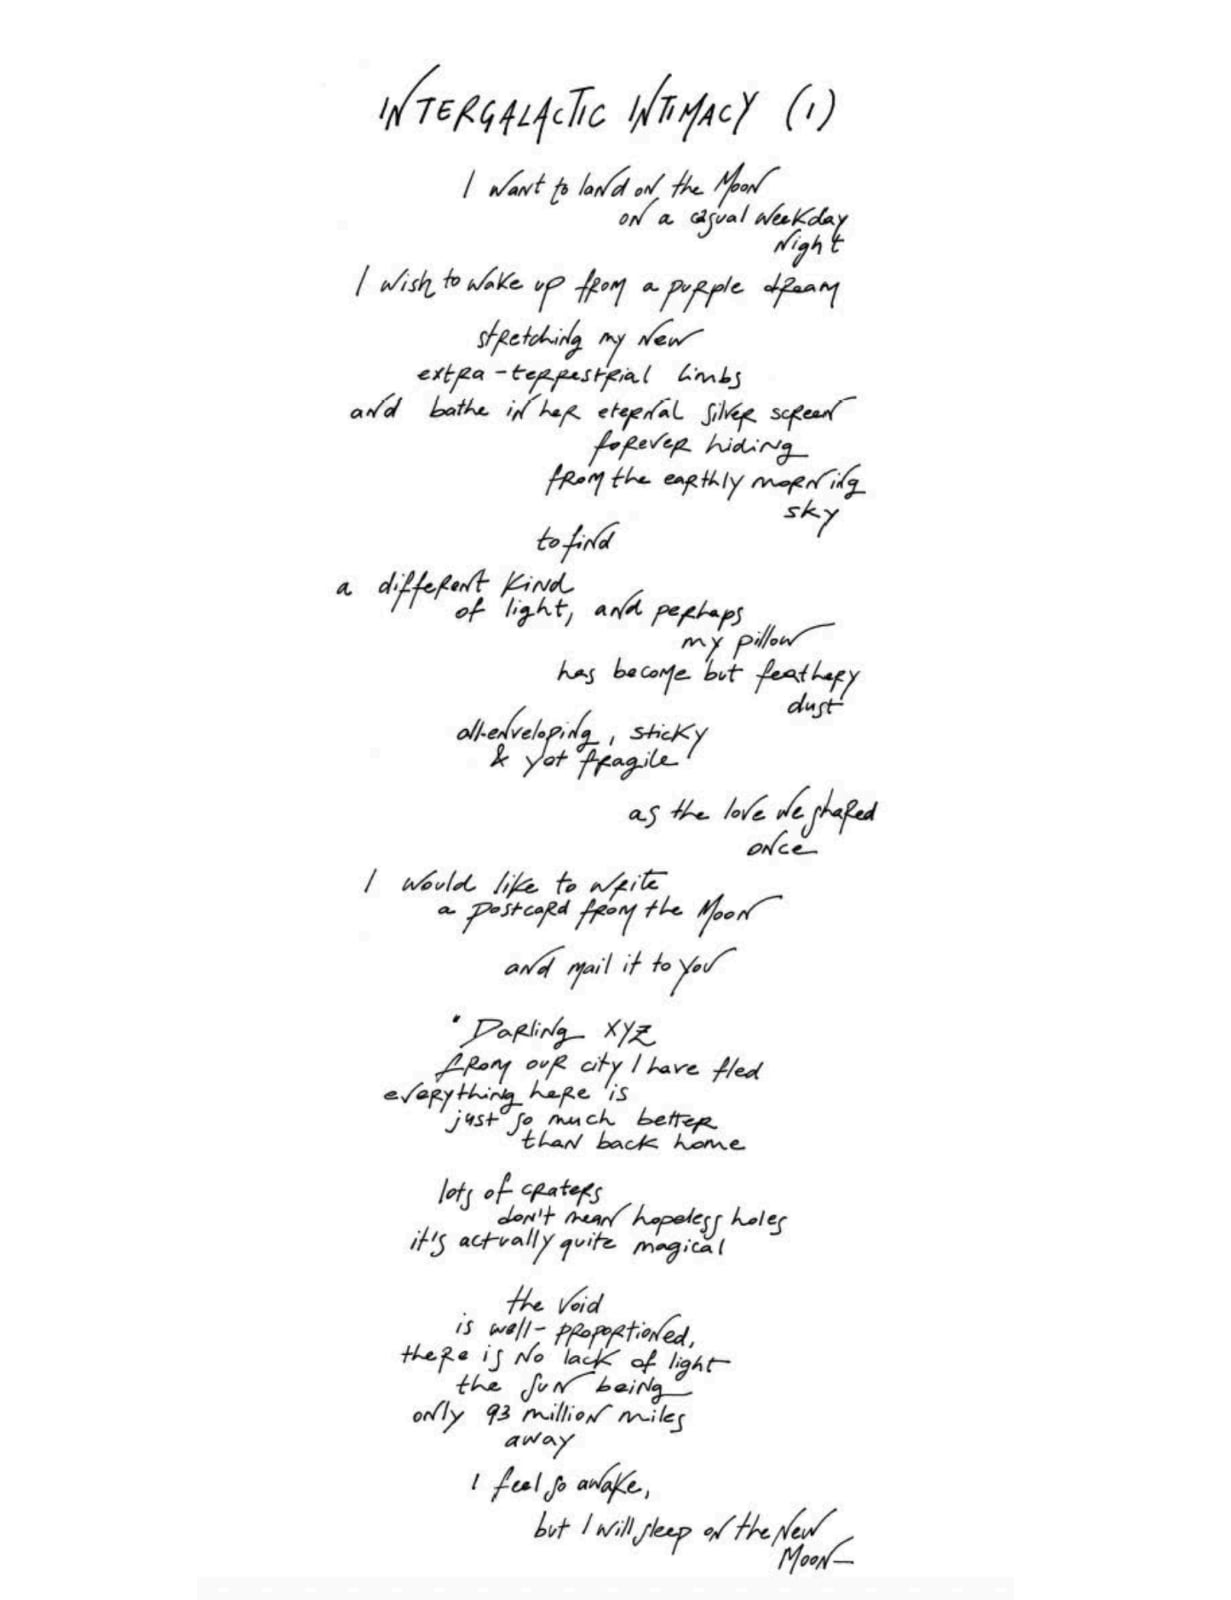 INTERGALACTIC INTIMACY (1)
I want to land on the Moon
on a casual weekday
night
I wish to wake up from a purple dream
stretching my new
extra-terrestrial limbs
and bathe in her eternal silver screen
forever hiding
from the earthly morning
sky
to find
a different kind
of light, and perhaps
my pillow
has become but feathery
dust
all-enveloping, sticky
& yet fragile
as the love we shared
once
I would like to write
a postcard from the Moon
and mail it to you
" Darling XYZ
from our city I have fled
everything here is
just so much better
than back home
lots of craters
don't mean hopeless holes
it's actually quite magical
the void
is well-proportioned,
there is no lack of light
the sun being
only 93 million miles
away
I feel so awake,
but I will sleep on the New
Moon—